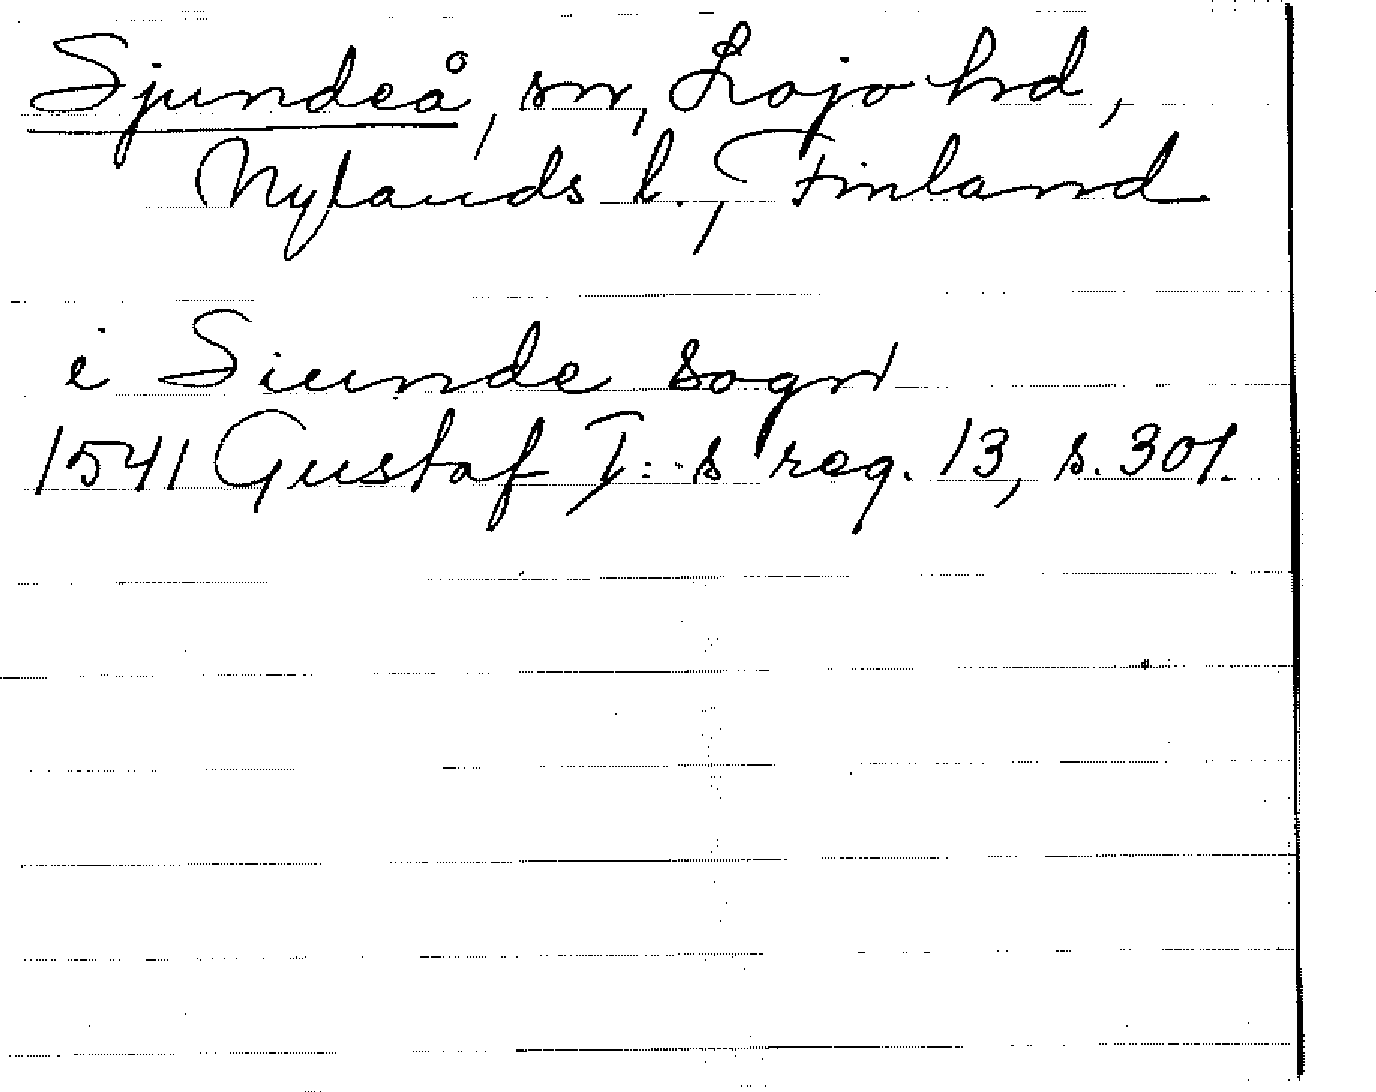 Sjundeå, sn, Lojo hd,
Nylands l., Finland
i Siunde sogn
1541 Gustaf I:s reg. 13, s. 301.